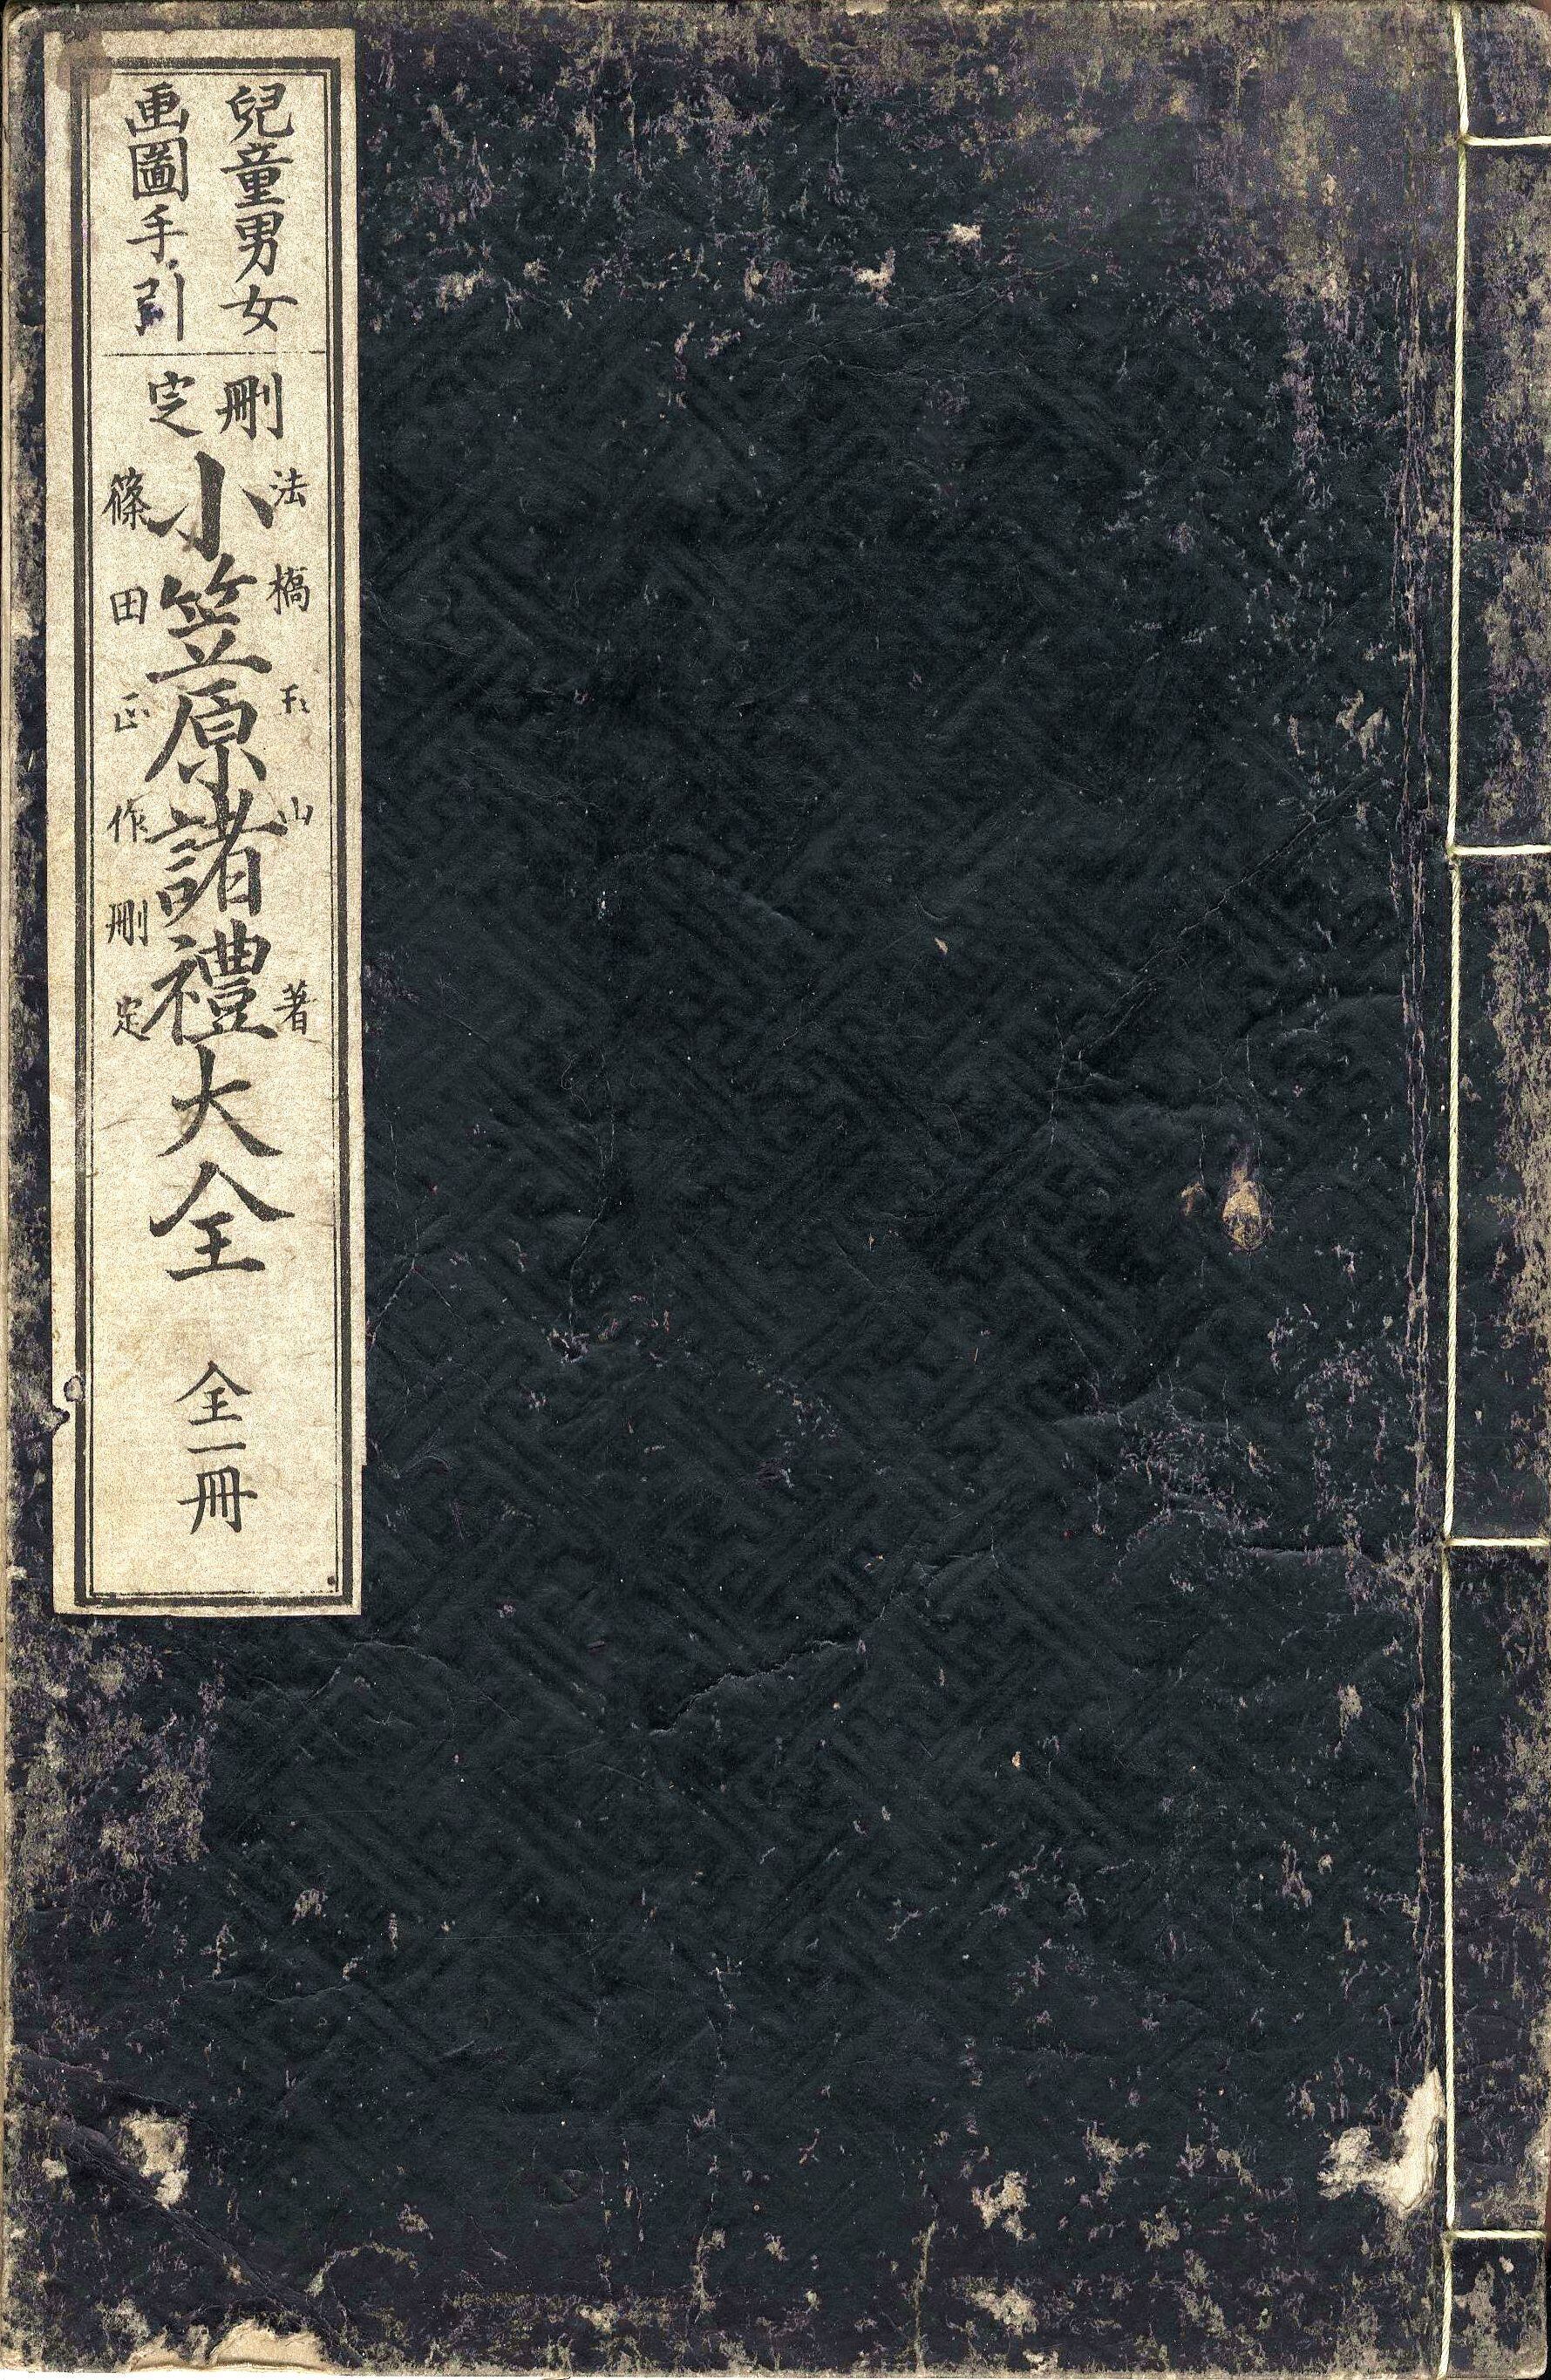 兒童男女
画圖手引
刪定
小笠原諸禮大全
法橋玉山著
篠田正作刪定
全一冊